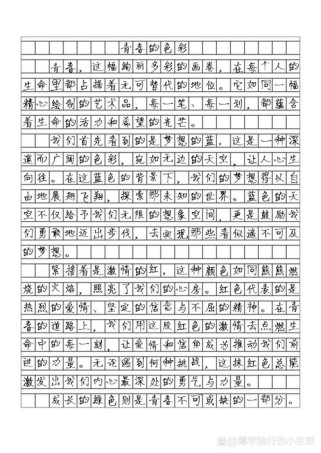 青春的色彩
青春，这幅绚丽多彩的画卷，在每个人的
生命里都占据着无可替代的地位。它如同一幅
精心绘制的艺术品，每一笔、每一划，都蕴含
着生命的活力和希望的光芒。
我们首先看到的是梦想的蓝，这是一种深
邃而广阔的色彩，宛如无边的天空，让人心生
向往。在这蓝色的背景下，我们的梦想得以自
由地展翅飞翔，探索那未知的世界。蓝色的天
空不仅给予我们无限的想象空间，更是鼓励我
们勇敢地迈出步伐，去实现那些看似遥不可及
的梦想。
紧接着是激情的红，这种颜色如同熊熊燃
烧的火焰，照亮了我们的心房。红色代表的是
热烈的爱情、坚定的信念与不屈的精神。在青
春的道路上，我们用这股红色的激情去点燃生
命中的每一刻，让爱情和信仰成为推动我们前
进的力量。无论遇到何种挑战，这抹红色总能
激发出我们内心最深处的勇气与力量。
成长的绿色则是青春不可或缺的一部分。
@博学独行的小安哥